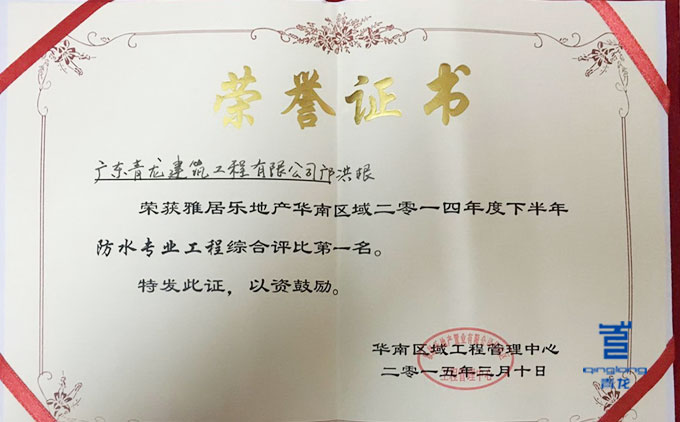 荣誉证书
广东青龙建筑工程有限公司邝洪根
荣获雅居乐地产华南区域二零一四年度下半年
防水专业工程综合评比第一名。
特发此证，以资鼓励。
华南区域工程管理中心
二零一五年三月十日
工程管理中心
qinglong
青龙